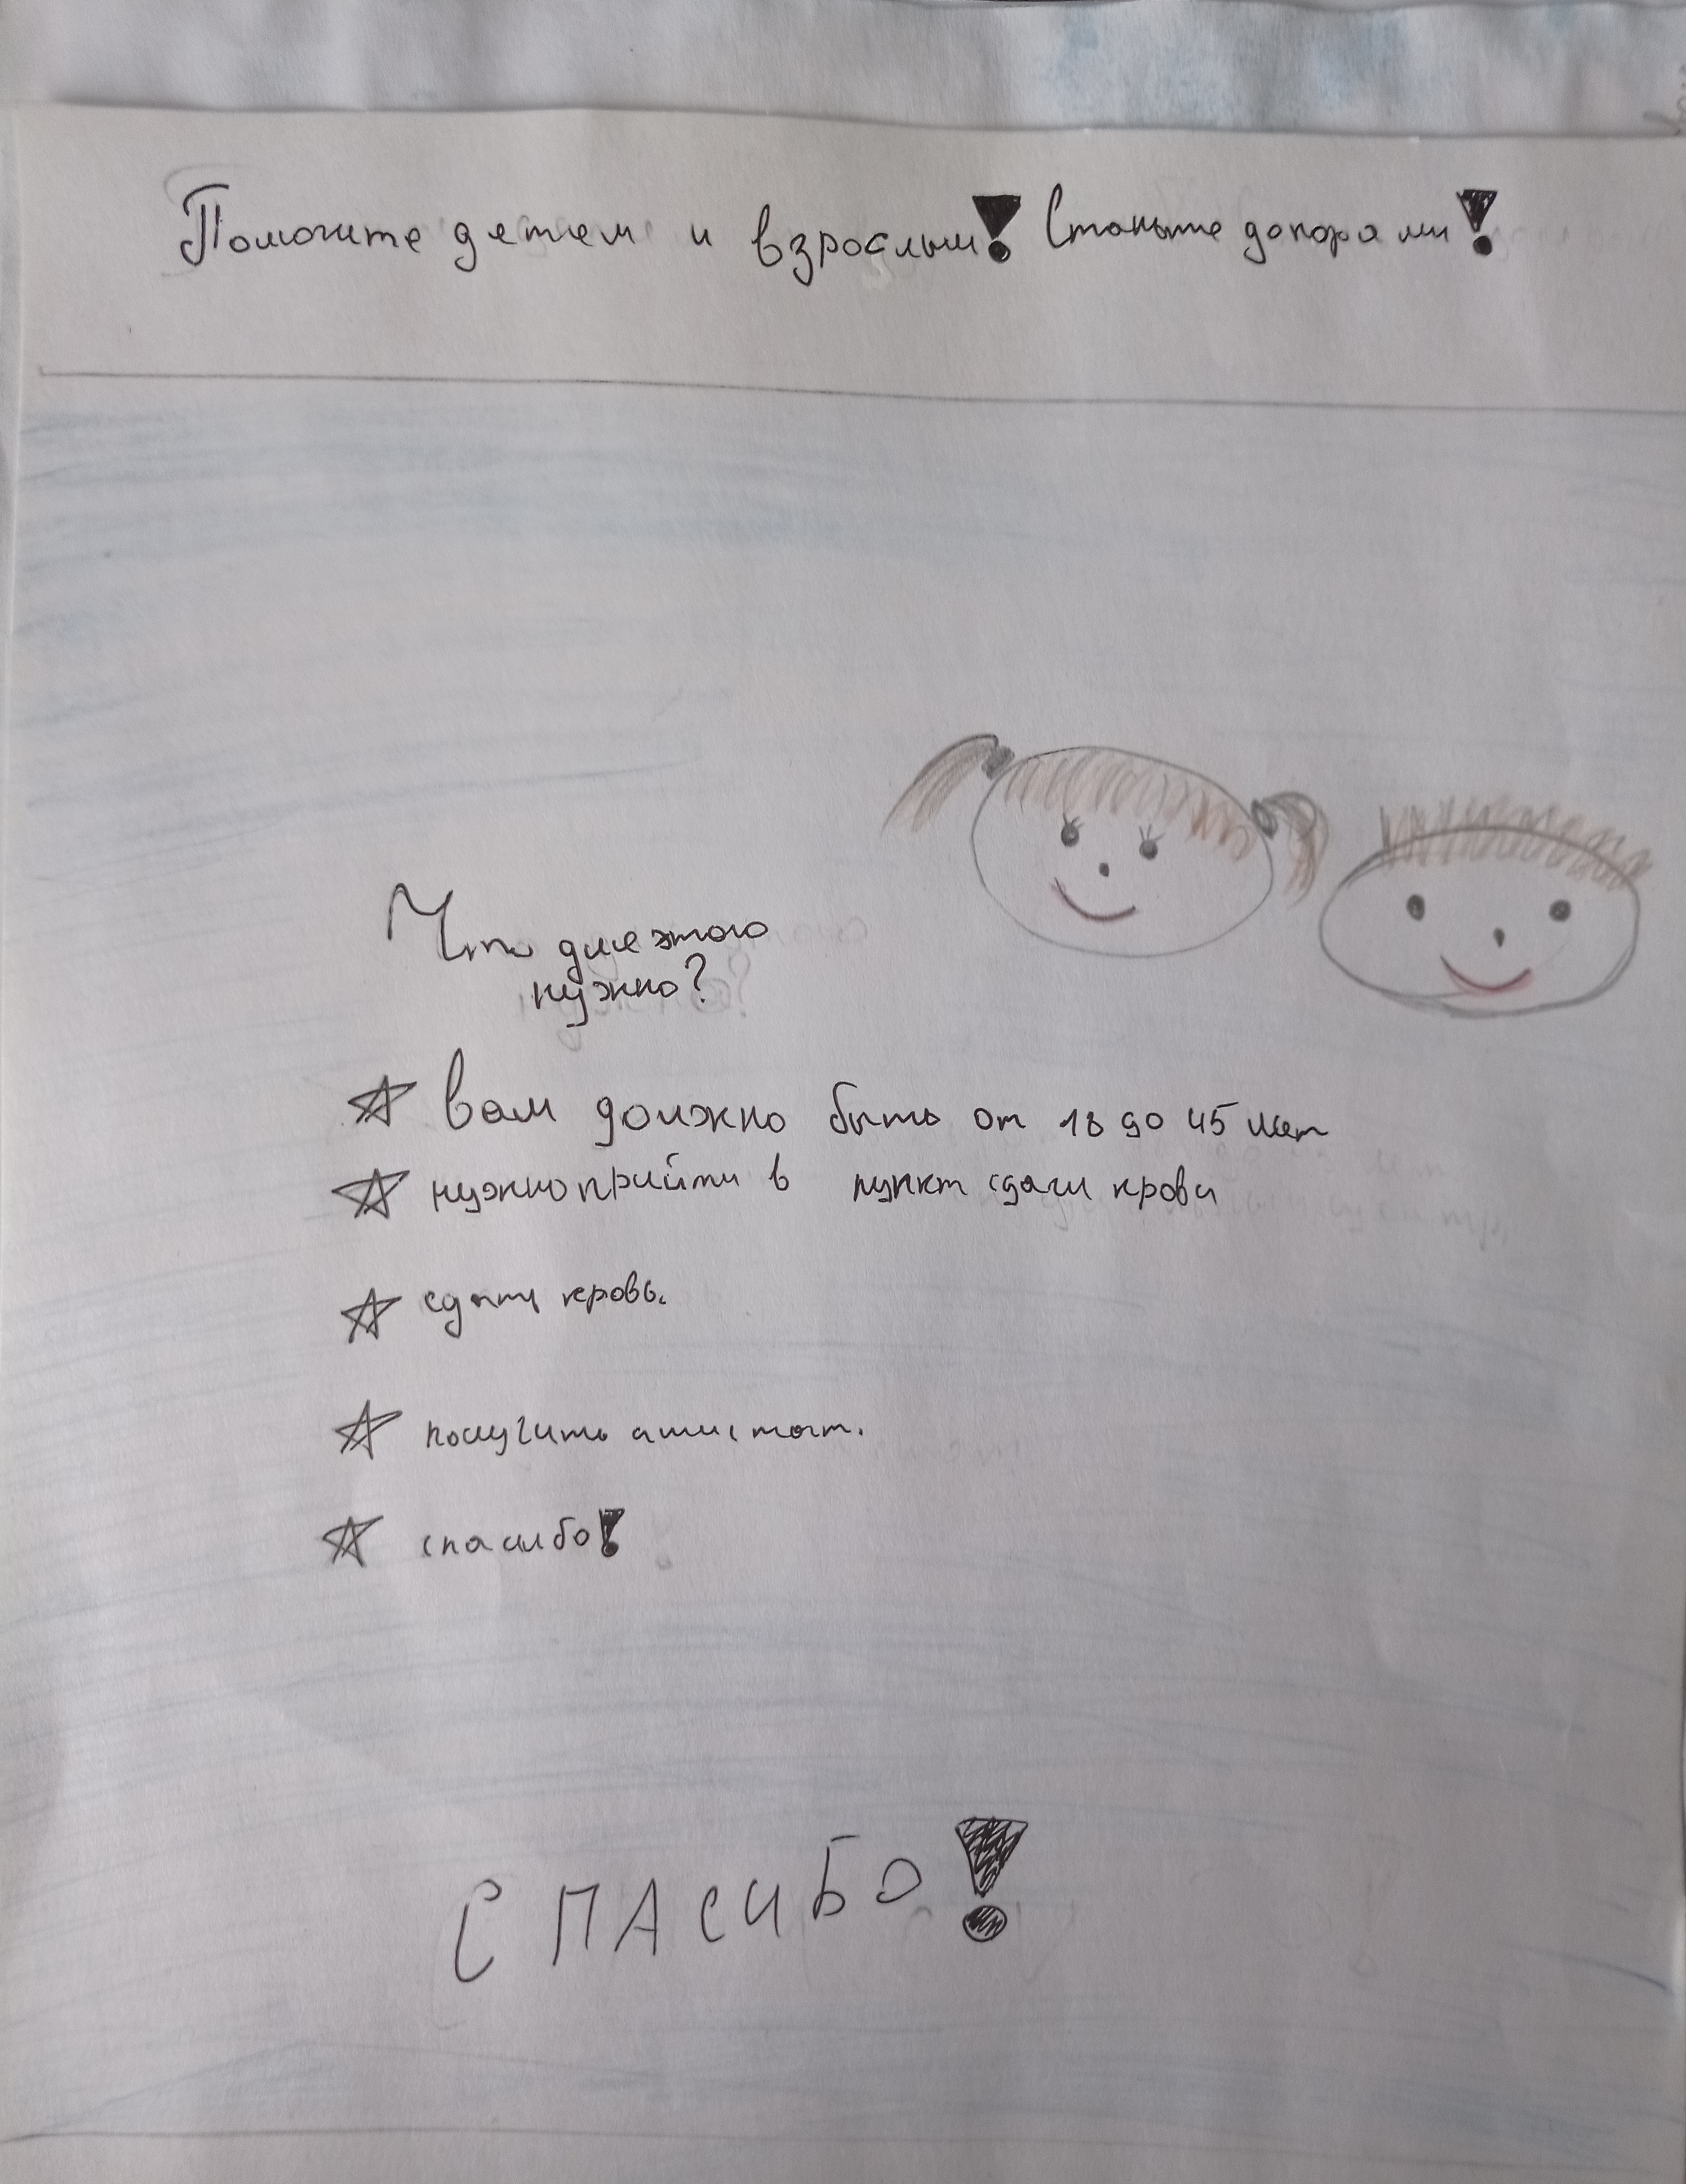 Помогите детем и взрослым! Станьте донорами!
Что для этого
нужно?
☆ Вам должно быть от 18 до 45 лет
☆ нужно прийти в пункт сдачи крови
☆ сдать кровь.
☆ получить
☆ спасибо!
СПАСИБО!